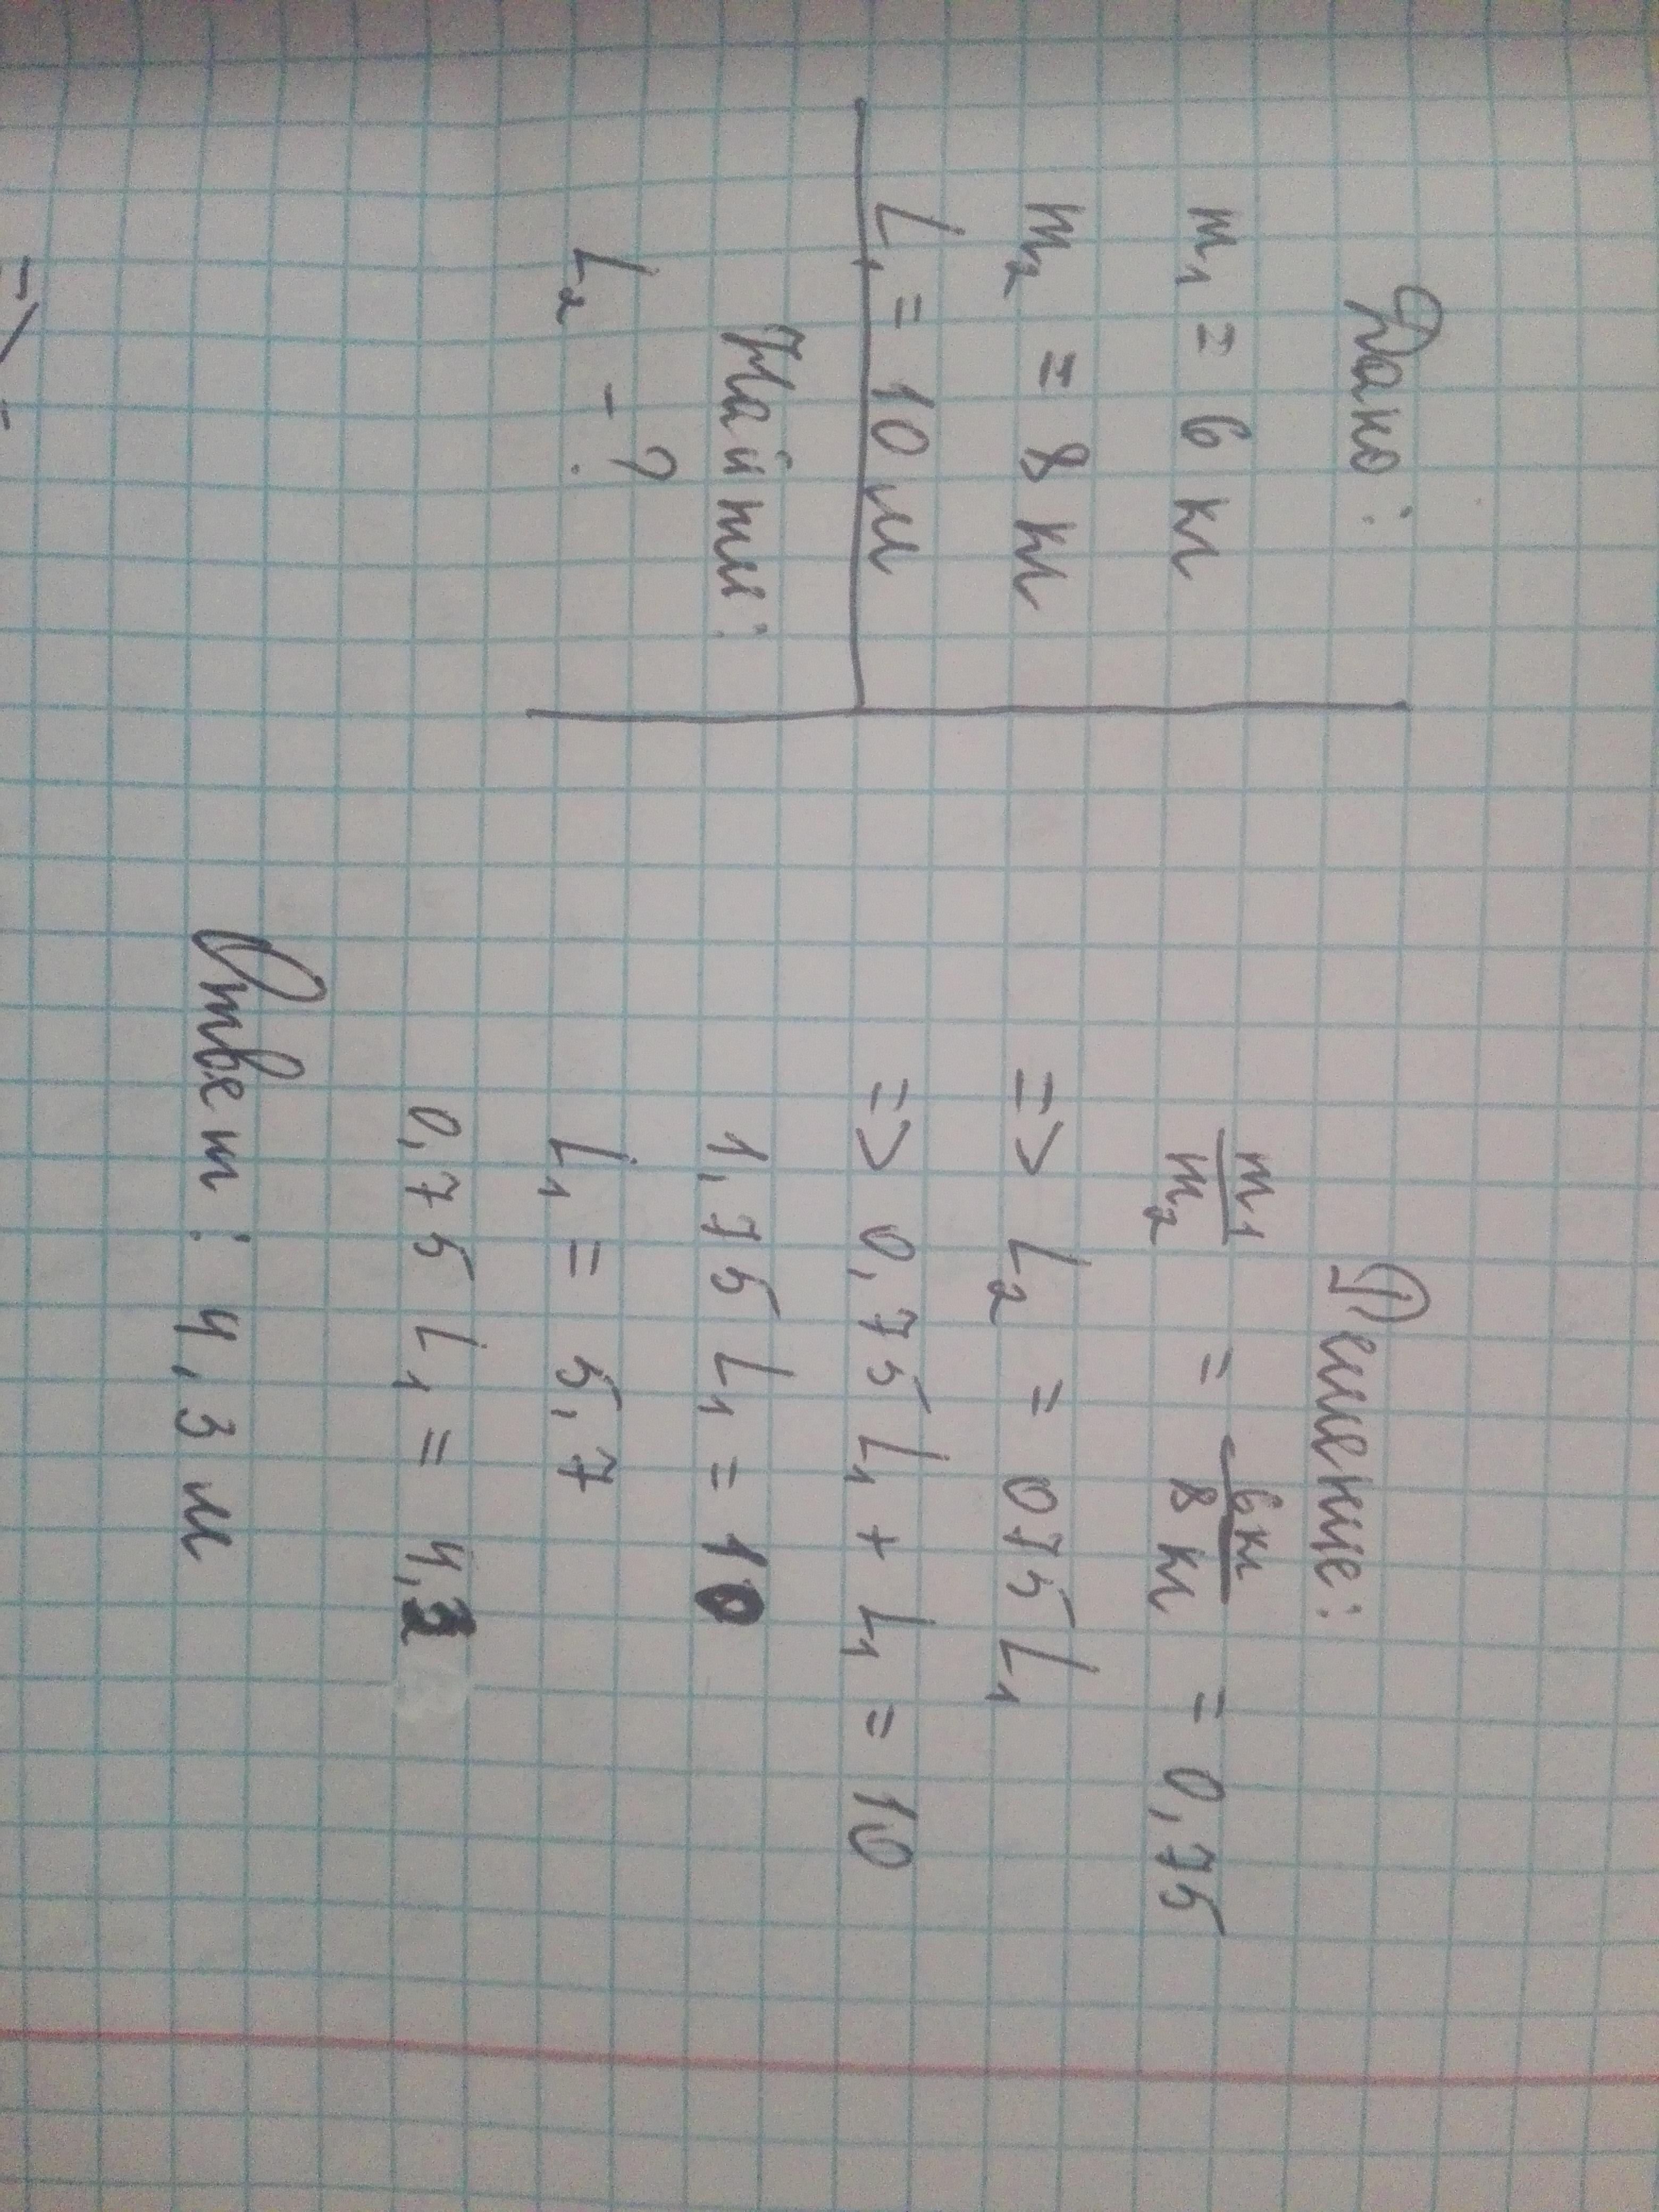 Дано:
m₁ = 6 кг
m₂ = 8 кг
L₁ = 10 м
Найти:
L₂ - ?
Решение:
m₁/m₂ = 6кг/8кг = 0,75
=> L₂ = 075 L₁
=> 0,75 L₁ + L₁ = 10
1,75 L₁ = 10
L₁ = 5,7
0,75 L₁ = 4,3
Ответ: 4,3 м